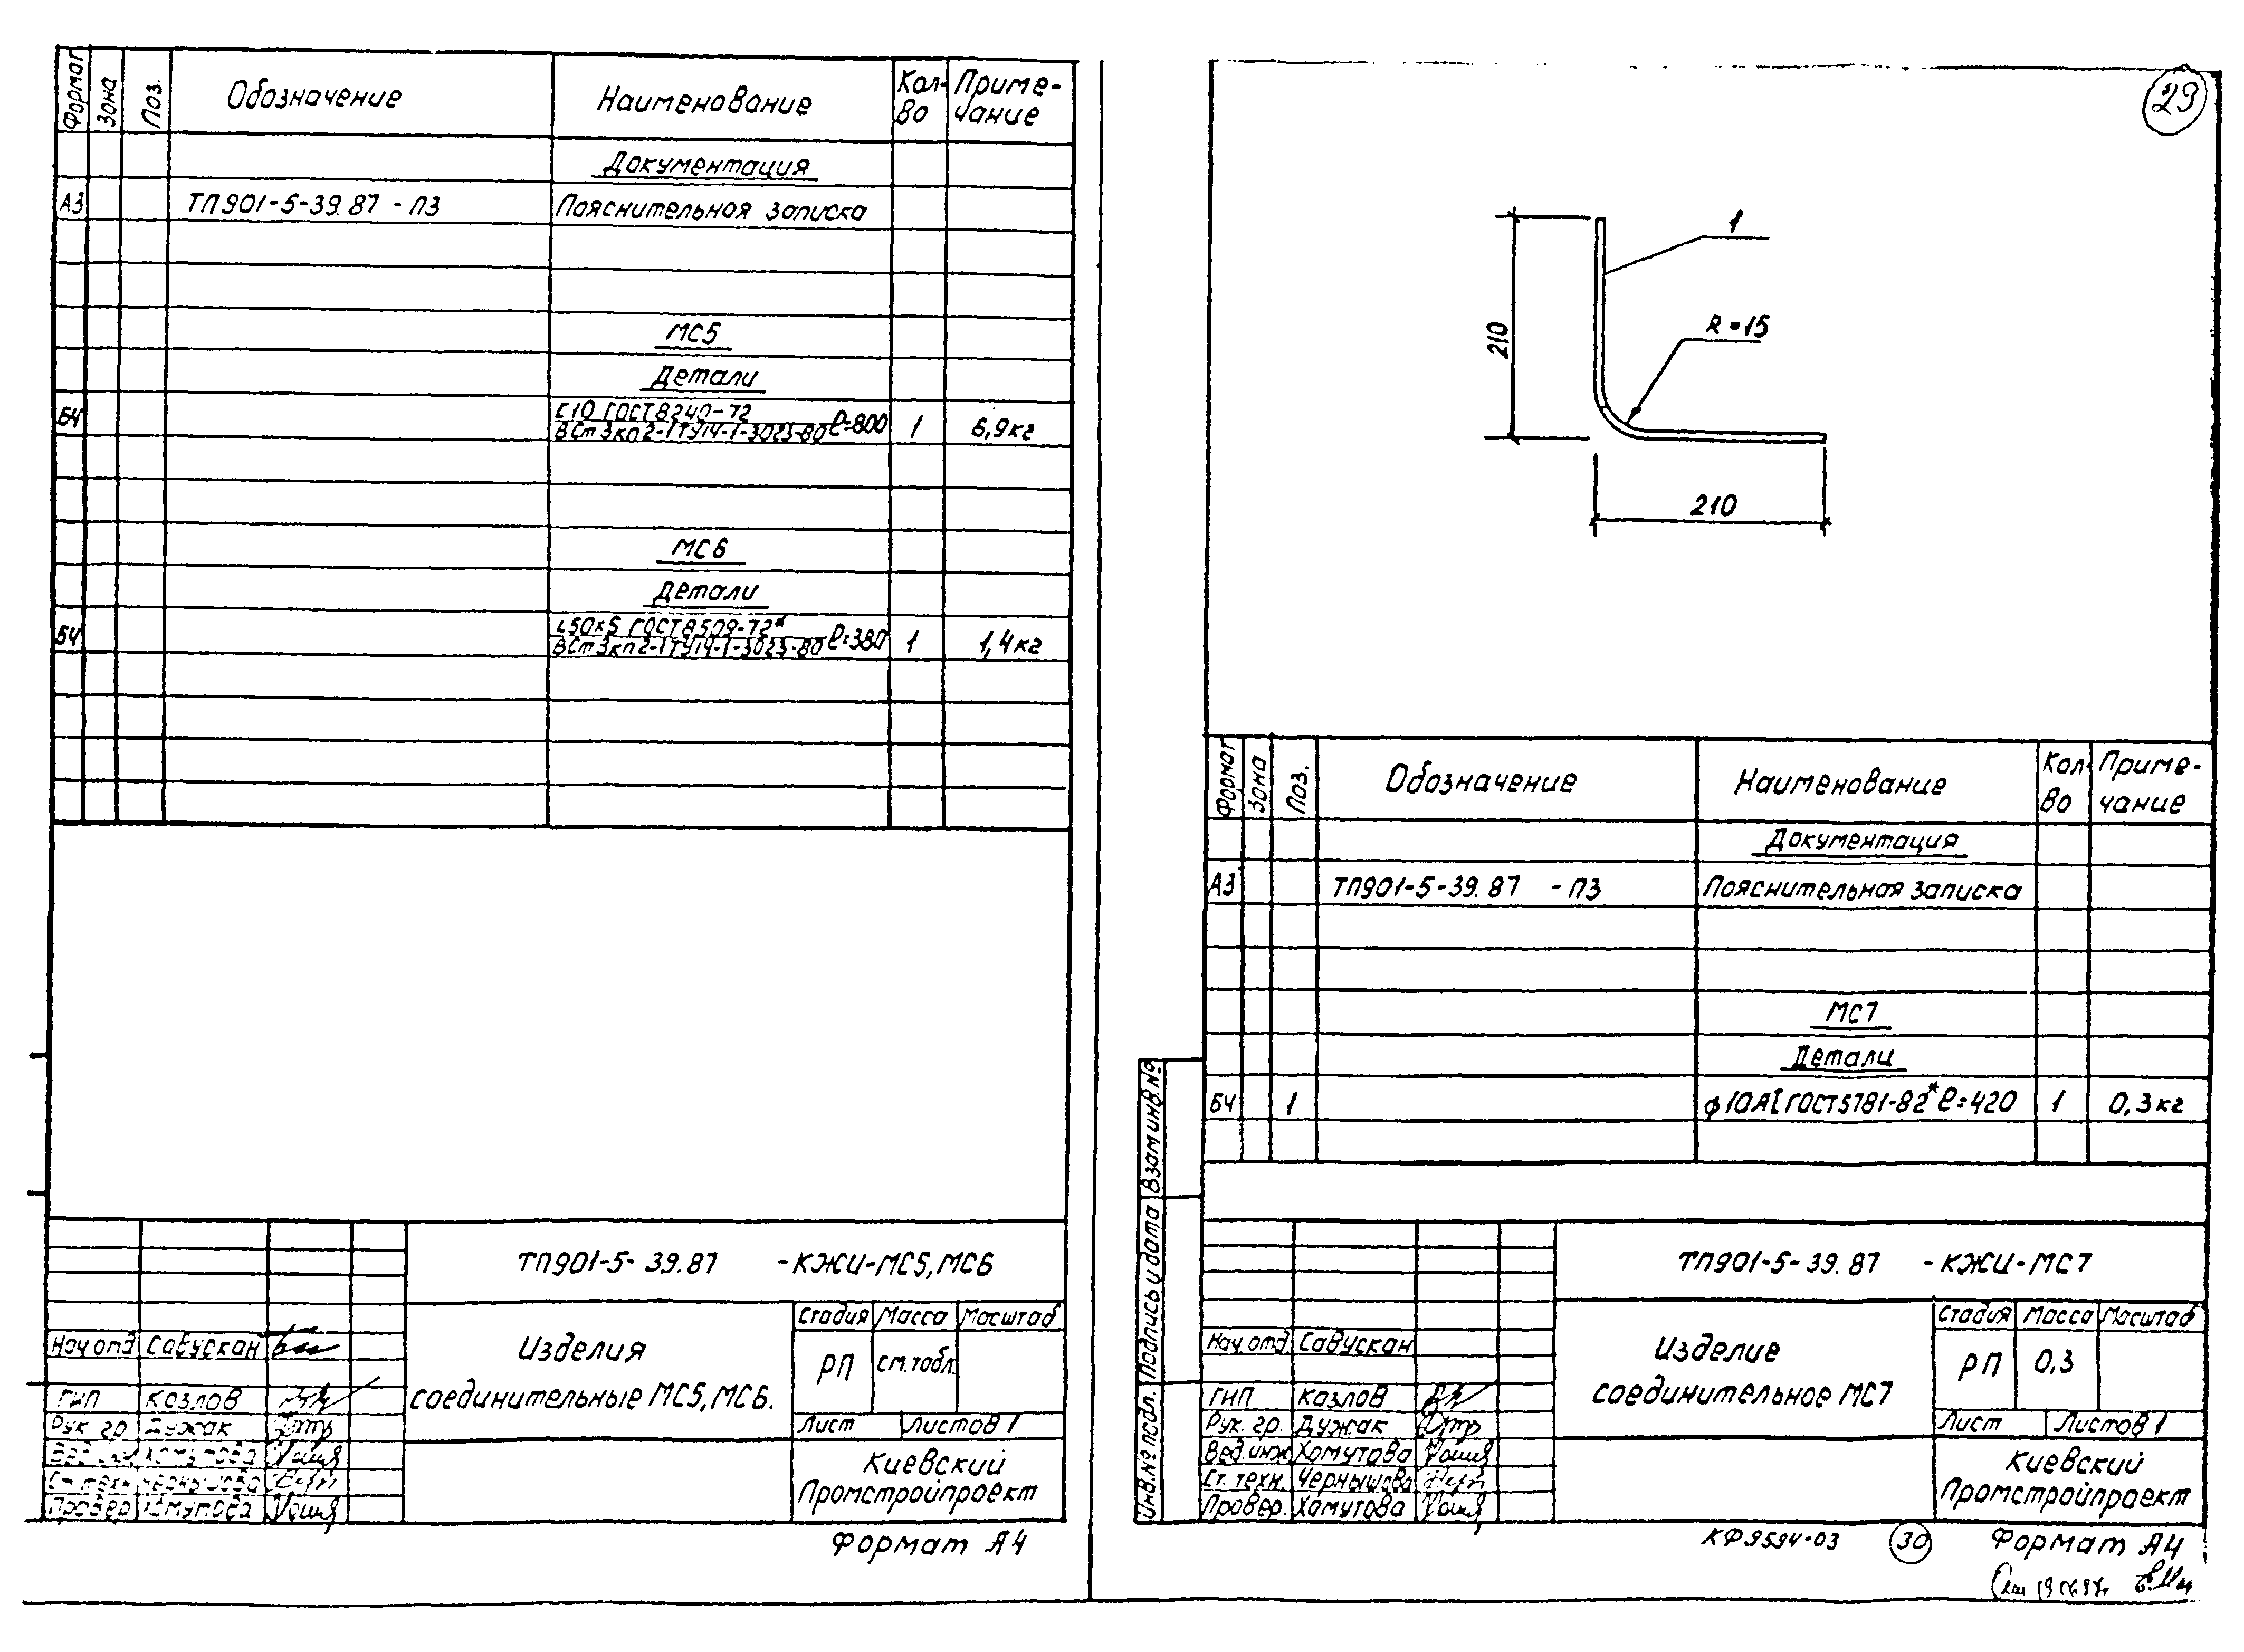 Формат Зона Поз. Обозначение Наименование Кол-во Примечание
Документация
А3 ТП901-5-39.87 - ПЗ Пояснительная записка
МС5
Детали
БЧ С10 ГОСТ8240-72 ℓ=800 1 6,9кг
ВСт3кп2-1ТУ14-1-3023-80
МС6
Детали
БЧ L50×5 ГОСТ8509-72* ℓ=380 1 1,4кг
ВСт3кп2-1ТУ14-1-3023-80
ТП901-5-39.87 -КЖИ-МС5,МС6
Стадия Масса Масштаб
Нач отд Савускан
Изделия
соединительные МС5,МС6.
РП см.табл.
ГИП Козлов
Рук. гр. Дужак
Лист Листов 1
Вед. инж Хомутова
Ст. техн. Чернышова
Провер. Хомутова
Киевский
Промстройпроект
Формат А4
29
1
R=15
210
210
Формат Зона Поз. Обозначение Наименование Кол-во Примечание
Документация
А3 ТП901-5-39.87 -ПЗ Пояснительная записка
МС7
Детали
БЧ 1 ф10АI ГОСТ5781-82* ℓ=420 1 0,3кг
Инв.№ подл. Подпись и дата Взам инв.№
ТП901-5-39.87 -КЖИ-МС7
Стадия Масса Масштаб
Нач.отд Савускан
Изделие
соединительное МС7
РП 0,3
ГИП Козлов
Рук. гр. Дужак
Лист Листов 1
Вед.инж Хомутова
Ст. техн. Чернышова
Провер. Хомутова
Киевский
Промстройпроект
КФ9594-03 30 Формат А4